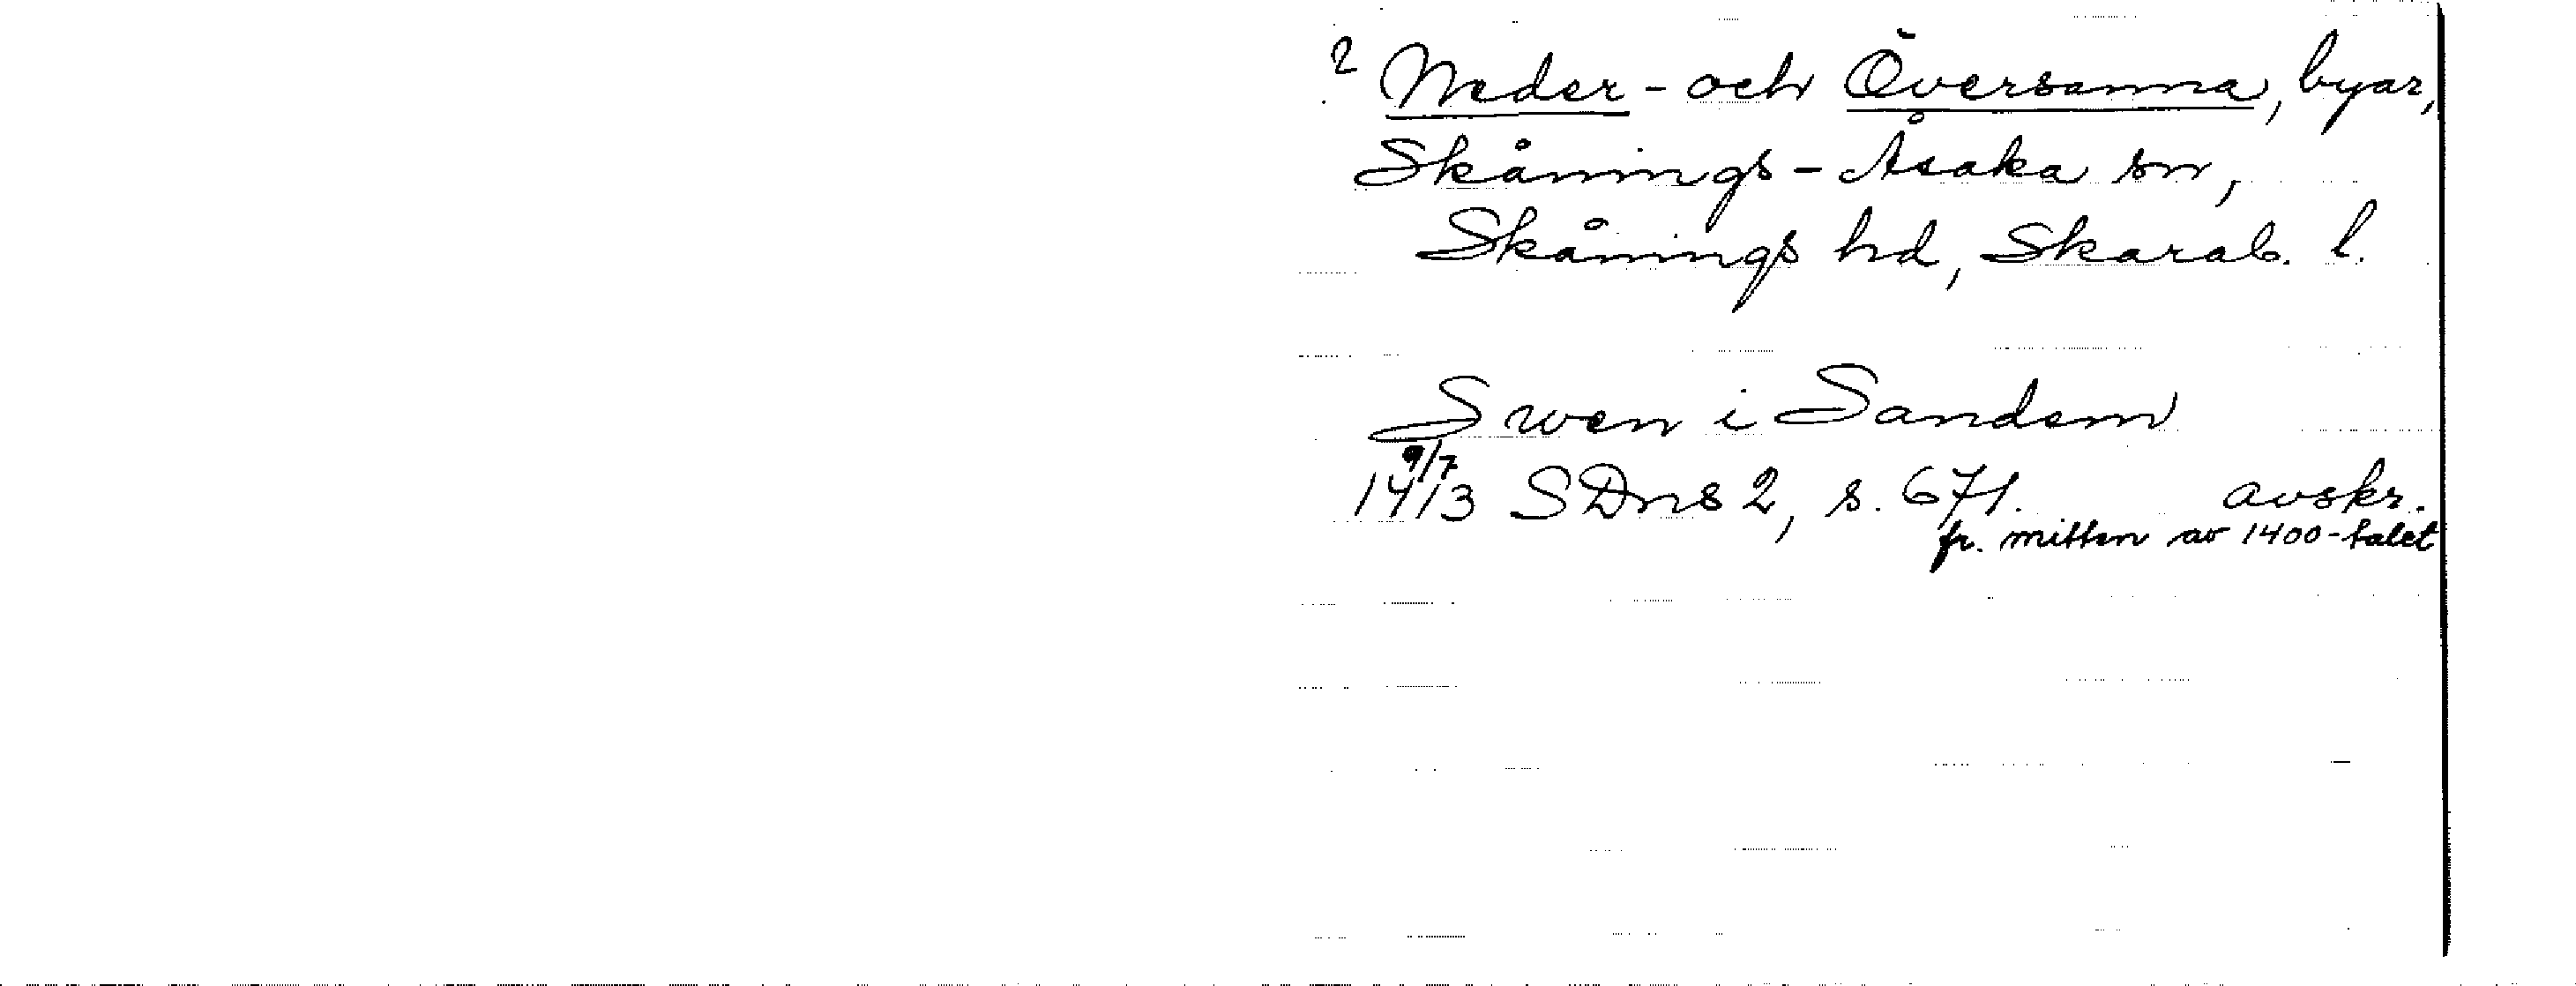 ? Neder- och Översanna, byar,
Skånings-Åsaka sn,
Skånings hd, Skarab. l.
Swen i Sandem
9/7
1413 SDns 2, s. 671. avskr.
fr. mitten av 1400-talet